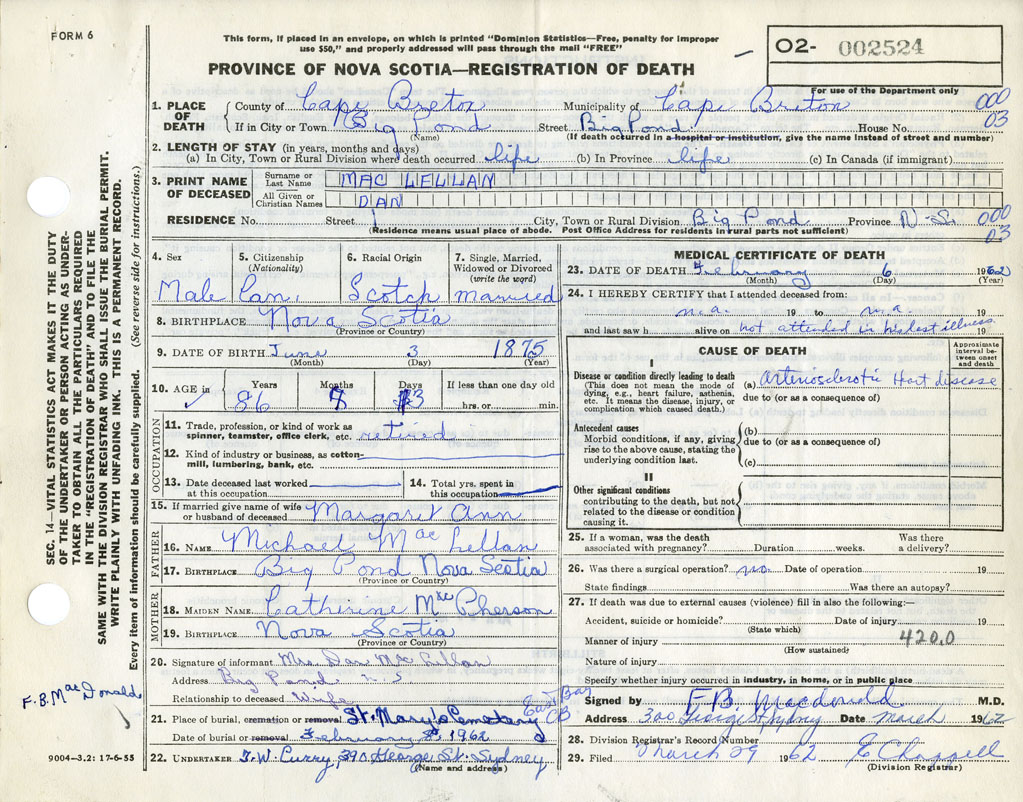 FORM 6
This form, if placed in an envelope, on which is printed "Dominion Statistics—Free, penalty for improper
use $50," and properly addressed will pass through the mail "FREE"
O2- 002524
PROVINCE OF NOVA SCOTIA—REGISTRATION OF DEATH
For use of the Department only
1. PLACE OF DEATH County of Cape Breton Municipality of Cape Breton 000
If in City or Town Big Pond Street Big Pond House No. 03
(Name) (If death occurred in a hospital or institution, give the name instead of street and number)
2. LENGTH OF STAY (in years, months and days)
(a) In City, Town or Rural Division where death occurred life (b) In Province life (c) In Canada (if immigrant)
3. PRINT NAME OF DECEASED Surname or Last Name MAC LELLAN
All Given or Christian Names DAN
RESIDENCE No. Street City, Town or Rural Division Big Pond Province N.S. 000
(Residence means usual place of abode. Post Office Address for residents in rural parts not sufficient) 03
4. Sex 5. Citizenship (Nationality) 6. Racial Origin 7. Single, Married, Widowed or Divorced (write the word)
Male Can. Scotch married
8. BIRTHPLACE Nova Scotia
(Province or Country)
9. DATE OF BIRTH June 3 1875
(Month) (Day) (Year)
10. AGE in Years Months Days If less than one day old
86 8 3 hrs. or min.
OCCUPATION
11. Trade, profession, or kind of work as spinner, teamster, office clerk, etc. retired
12. Kind of industry or business, as cotton-mill, lumbering, bank, etc.
13. Date deceased last worked at this occupation 14. Total yrs. spent in this occupation
15. If married give name of wife or husband of deceased Margaret Ann
FATHER
16. NAME Michael Mac Lellan
17. BIRTHPLACE Big Pond Nova Scotia
(Province or Country)
MOTHER
18. MAIDEN NAME Catherine MacPherson
19. BIRTHPLACE Nova Scotia
(Province or Country)
20. Signature of informant Mrs. Dan Mac Lellan
Address Big Pond N.S
Relationship to deceased Wife
21. Place of burial, cremation or removal St. Mary's Cemetery East Bay CB
Date of burial or removal February 1962
22. UNDERTAKER T.W. Curry, 390 George St. Sydney
(Name and address)
MEDICAL CERTIFICATE OF DEATH
23. DATE OF DEATH February 6 1962
(Month) (Day) (Year)
24. I HEREBY CERTIFY that I attended deceased from:
n.a. 19 to n.a. 19
and last saw h alive on not attended in his last illness 19
CAUSE OF DEATH
Approximate interval between onset and death
I
Disease or condition directly leading to death
(This does not mean the mode of dying, e.g., heart failure, asthenia, etc. It means the disease, injury, or complication which caused death.)
(a) Arteriosclerotic Heart disease
due to (or as a consequence of)
Antecedent causes
Morbid conditions, if any, giving rise to the above cause, stating the underlying condition last.
(b)
due to (or as a consequence of)
(c)
II
Other significant conditions
contributing to the death, but not related to the disease or condition causing it.
25. If a woman, was the death associated with pregnancy? Duration weeks. Was there a delivery?
26. Was there a surgical operation? no. Date of operation 19
State findings Was there an autopsy?
27. If death was due to external causes (violence) fill in also the following:
Accident, suicide or homicide? Date of injury 19
(State which)
Manner of injury 420.0
(How sustained)
Nature of injury
Specify whether injury occurred in industry, in home, or in public place
Signed by F.B. Macdonald M.D.
Address 300 George St Sydney Date March 1962
28. Division Registrar's Record Number
29. Filed March 29 1962 E Chappell
(Division Registrar)
SEC. 14—VITAL STATISTICS ACT MAKES IT THE DUTY
OF THE UNDERTAKER OR PERSON ACTING AS UNDER-
TAKER TO OBTAIN ALL THE PARTICULARS REQUIRED
IN THE "REGISTRATION OF DEATH" AND TO FILE THE
SAME WITH THE DIVISION REGISTRAR WHO SHALL ISSUE THE BURIAL PERMIT.
WRITE PLAINLY WITH UNFADING INK. THIS IS A PERMANENT RECORD.
Every item of information should be carefully supplied. (See reverse side for instructions.)
F.B. MacDonald
9004-3.2: 17-6-55